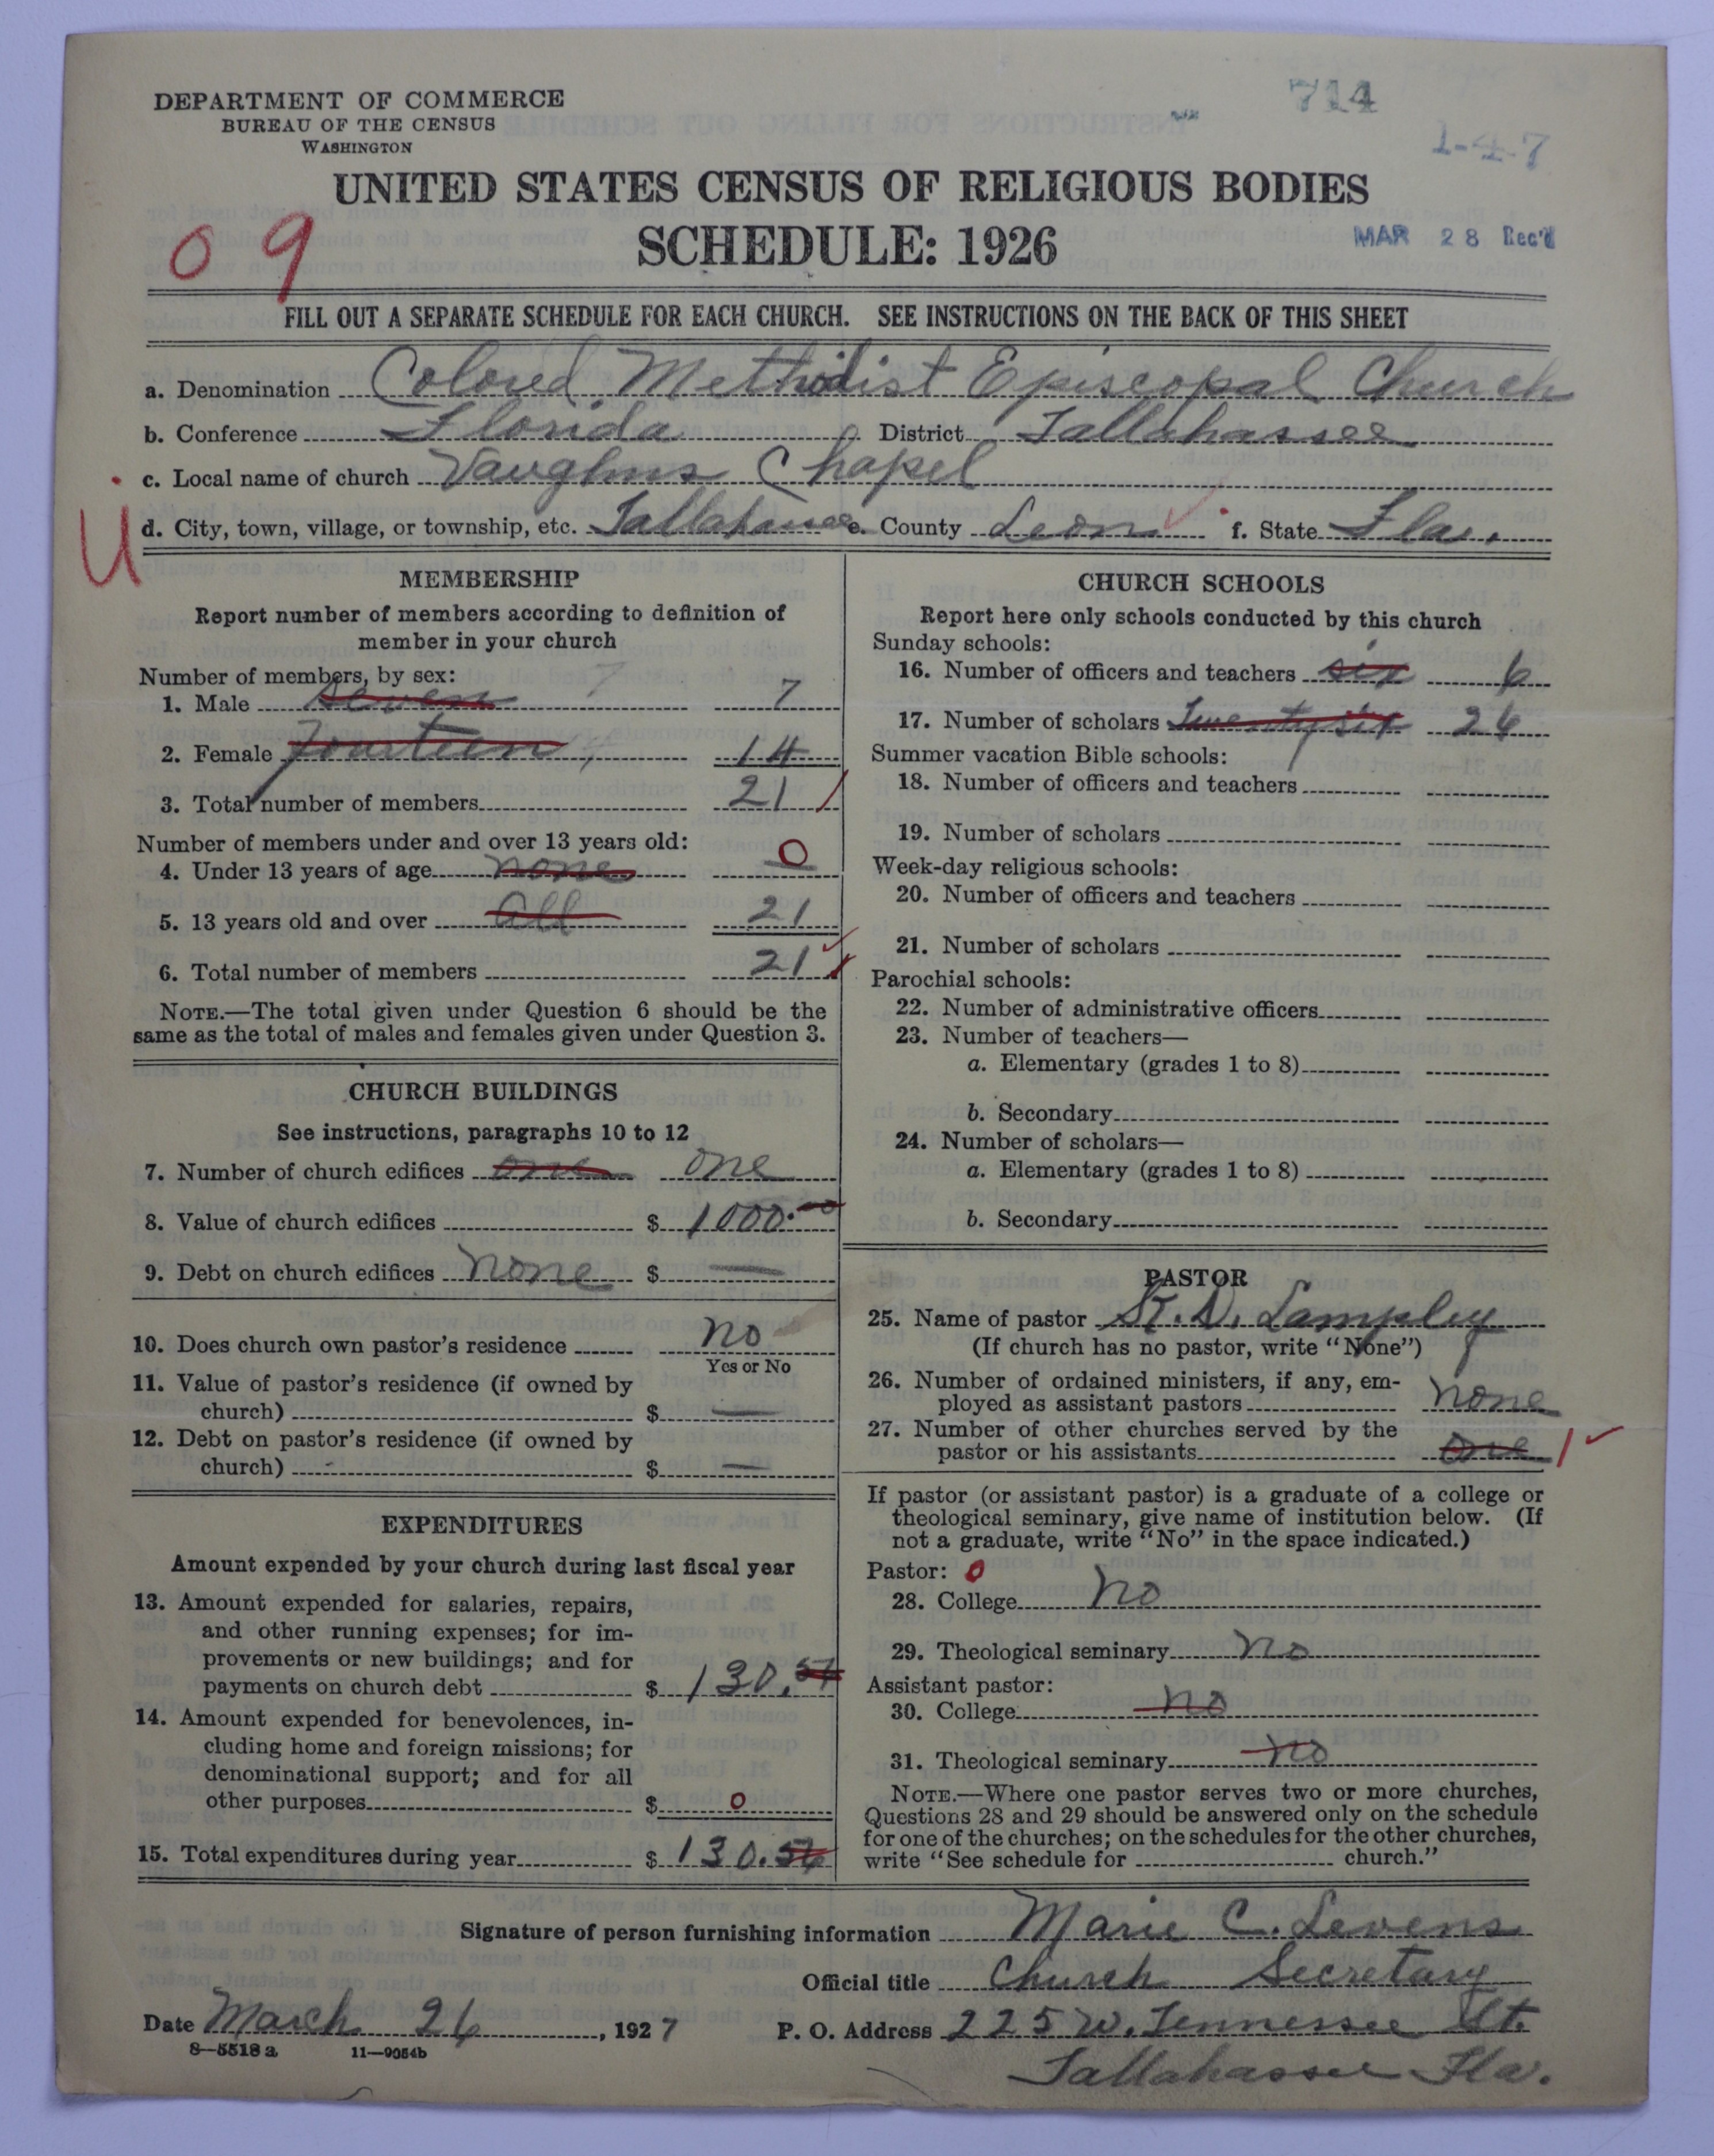 DEPARTMENT OF COMMERCE
BUREAU OF THE CENSUS
WASHINGTON
714
1-4-7
UNITED STATES CENSUS OF RELIGIOUS BODIES
SCHEDULE: 1926
09
MAR 28 Rec'd
FILL OUT A SEPARATE SCHEDULE FOR EACH CHURCH. SEE INSTRUCTIONS ON THE BACK OF THIS SHEET
a. Denomination Colored Methodist Episcopal Church
b. Conference Florida District Tallahassee
c. Local name of church Vaughns Chapel
U
d. City, town, village, or township, etc. Tallahassee e. County Leon f. State Fla.
MEMBERSHIP
Report number of members according to definition of
member in your church
Number of members, by sex:
1. Male seven 7 7
2. Female fourteen 14
3. Total number of members 21
Number of members under and over 13 years old:
4. Under 13 years of age none 0
5. 13 years old and over all 21
6. Total number of members 21
NOTE.—The total given under Question 6 should be the
same as the total of males and females given under Question 3.
CHURCH BUILDINGS
See instructions, paragraphs 10 to 12
7. Number of church edifices one one
8. Value of church edifices $ 1000.00
9. Debt on church edifices none $ —
10. Does church own pastor's residence no
Yes or No
11. Value of pastor's residence (if owned by
church) $ —
12. Debt on pastor's residence (if owned by
church) $ —
EXPENDITURES
Amount expended by your church during last fiscal year
13. Amount expended for salaries, repairs,
and other running expenses; for im-
provements or new buildings; and for
payments on church debt $ 130.
14. Amount expended for benevolences, in-
cluding home and foreign missions; for
denominational support; and for all
other purposes $ 0
15. Total expenditures during year $ 130.
CHURCH SCHOOLS
Report here only schools conducted by this church
Sunday schools:
16. Number of officers and teachers six 6
17. Number of scholars Twenty six 26
Summer vacation Bible schools:
18. Number of officers and teachers
19. Number of scholars
Week-day religious schools:
20. Number of officers and teachers
21. Number of scholars
Parochial schools:
22. Number of administrative officers
23. Number of teachers—
a. Elementary (grades 1 to 8)
b. Secondary
24. Number of scholars—
a. Elementary (grades 1 to 8)
b. Secondary
PASTOR
25. Name of pastor D. Lampley
(If church has no pastor, write "None")
26. Number of ordained ministers, if any, em-
ployed as assistant pastors none
27. Number of other churches served by the
pastor or his assistants one 1
If pastor (or assistant pastor) is a graduate of a college or
theological seminary, give name of institution below. (If
not a graduate, write "No" in the space indicated.)
Pastor: 0
28. College no
29. Theological seminary no
Assistant pastor:
30. College no
31. Theological seminary no
NOTE.—Where one pastor serves two or more churches,
Questions 28 and 29 should be answered only on the schedule
for one of the churches; on the schedules for the other churches,
write "See schedule for church."
Signature of person furnishing information Marie C. Levens
Official title Church Secretary
Date March 26, 1927 P. O. Address 225 W. Tennessee St.
8—5518 a 11—9054b
Tallahassee Fla.